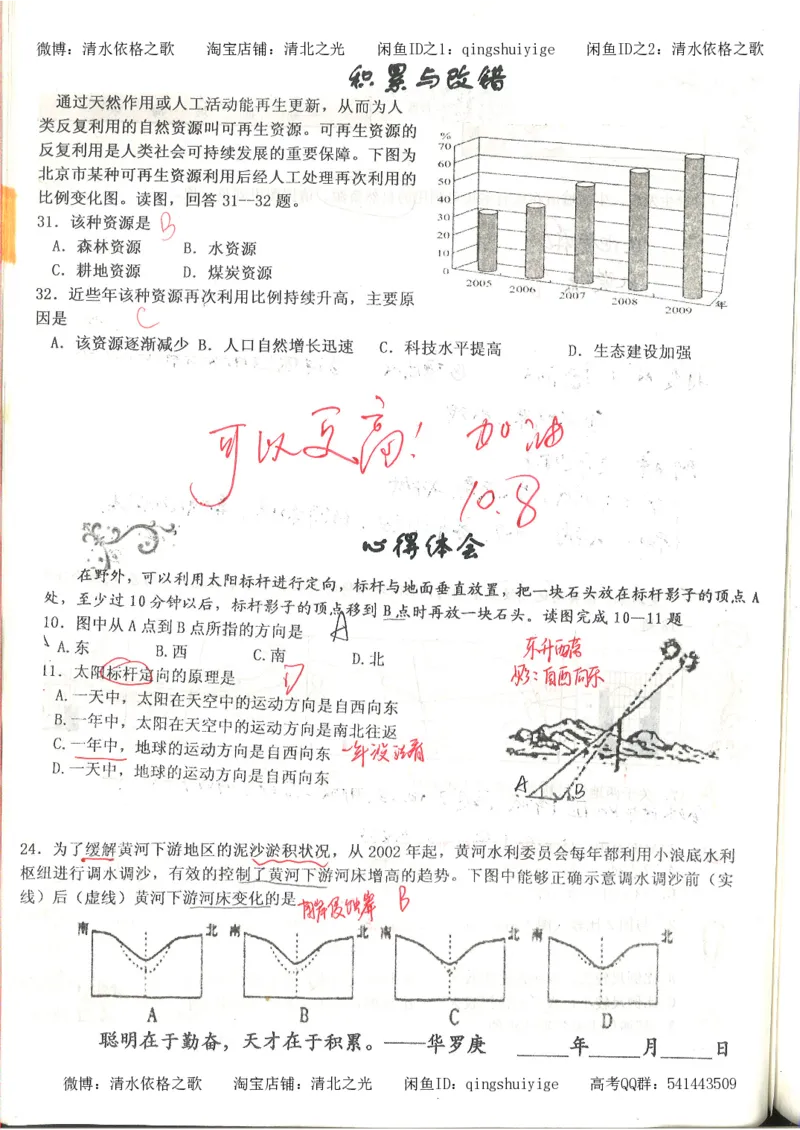 微博：清水依格之歌 淘宝店铺：清北之光 闲鱼ID之1：qingshuiyige 闲鱼ID之2：清水依格之歌
积累与改错
通过天然作用或人工活动能再生更新，从而为人
类反复利用的自然资源叫可再生资源。可再生资源的
反复利用是人类社会可持续发展的重要保障。下图为
北京市某种可再生资源利用后经人工处理再次利用的
比例变化图。读图，回答31--32题。
31．该种资源是 B
A．森林资源 B．水资源
C．耕地资源 D．煤炭资源
32．近些年该种资源再次利用比例持续升高，主要原
因是 C
A．该资源逐渐减少 B．人口自然增长迅速 C．科技水平提高 D．生态建设加强
%
70
60
50
40
30
20
10
0
2005 2006 2007 2008 2009 年
可以更高！加油
10.8
心得体会
在野外，可以利用太阳标杆进行定向，标杆与地面垂直放置，把一块石头放在标杆影子的顶点A
处，至少过10分钟以后，标杆影子的顶点移到B点时再放一块石头。读图完成10—11题
10．图中从A点到B点所指的方向是 A
A.东 B.西 C.南 D.北
11．太阳标杆定向的原理是 D
A.一天中，太阳在天空中的运动方向是自西向东
B.一年中，太阳在天空中的运动方向是南北往返
C.一年中，地球的运动方向是自西向东
D.一天中，地球的运动方向是自西向东
东升西落
影：自西向东
A B
24．为了缓解黄河下游地区的泥沙淤积状况，从2002年起，黄河水利委员会每年都利用小浪底水利
枢纽进行调水调沙，有效的控制了黄河下游河床增高的趋势。下图中能够正确示意调水调沙前（实
线）后（虚线）黄河下游河床变化的是 B
南 北 南 北 南 北 南 北
A B C D
聪明在于勤奋，天才在于积累。——华罗庚 _____年_____月_____日
微博：清水依格之歌 淘宝店铺：清北之光 闲鱼ID：qingshuiyige 高考QQ群：541443509